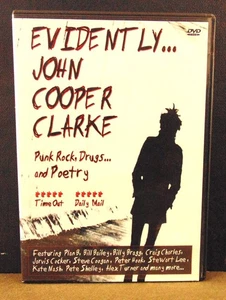 DVD
EVIDENTLY...
JOHN
COOPER
CLARKE
Punk Rock, Drugs...
and Poetry
Time Out Daily Mail
Featuring Plan B, Bill Bailey, Billy Bragg, Craig Charles,
Jarvis Cocker, Steve Coogan, Peter Hook, Stewart Lee,
Kate Nash, Pete Shelley, Alex Turner and many more...